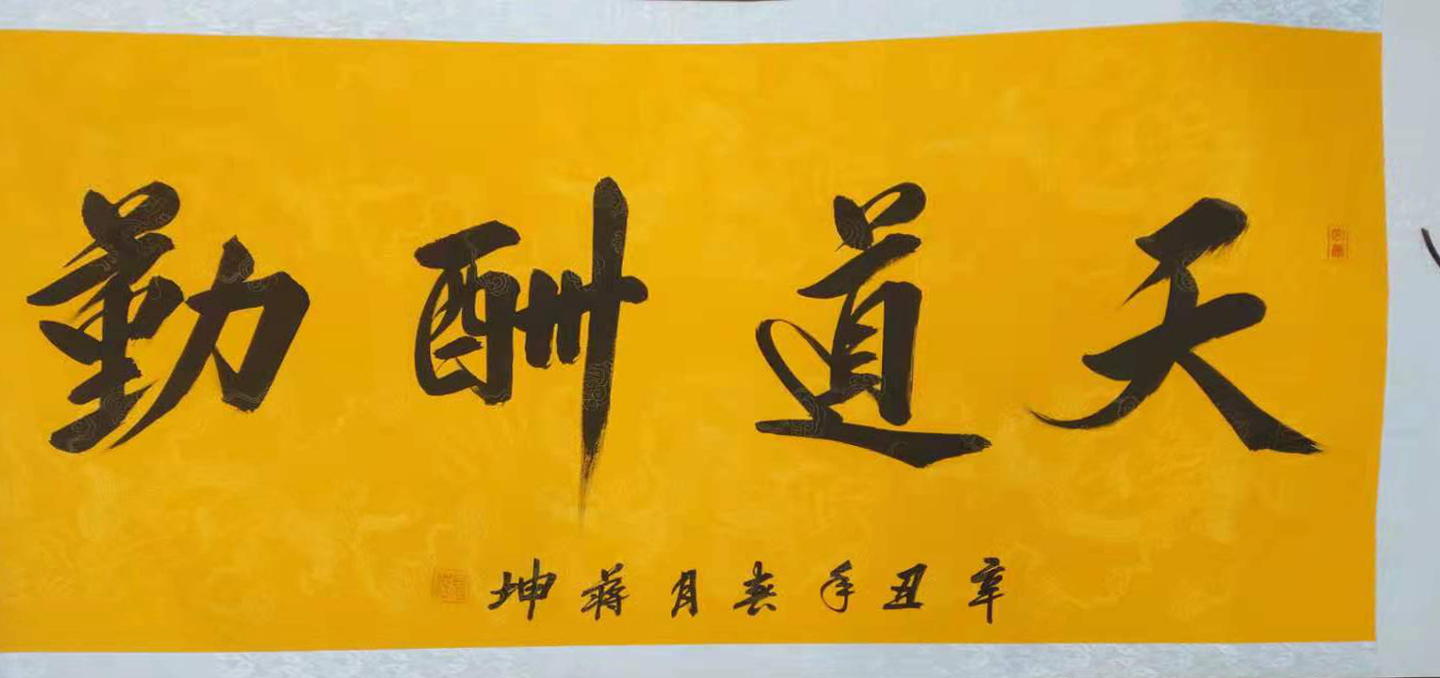 天道酬勤
辛丑年春月蒋坤